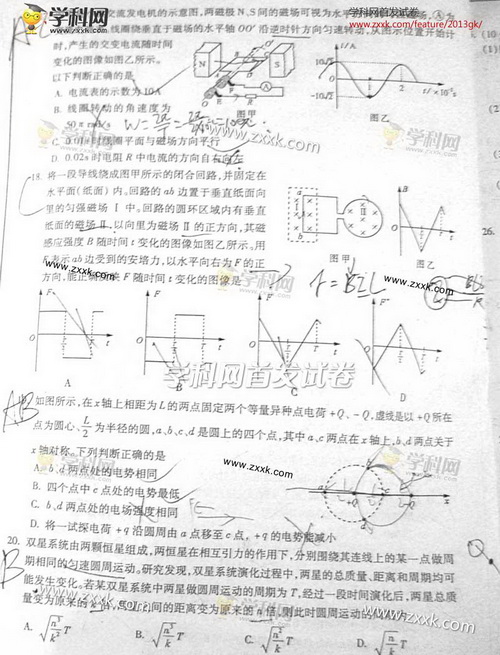 学科网首发试卷
www.zxxk.com/feature/2013gk/
学科网首发试卷
www.zxxk.com
交流发电机的示意图,两磁极N、S间的磁场可视为水平
线圈绕垂直于磁场的水平轴OO′沿逆时针方向匀速转动,从图示位置开始计
时,产生的交变电流随时间
变化的图像如图乙所示。
以下判断正确的是
A. 电流表的示数为10A
B. 线圈转动的角速度为
50π rad/s
C. 0.01s时线圈平面与磁场方向平行
D. 0.02s时电阻R中电流的方向自右向左
N
S
图甲
i/A
10√2
-10√2
1
2
t/×10⁻²s
图乙
学科网
zxxk.com
18. 将一段导线绕成图甲所示的闭合回路,并固定在
水平面(纸面)内。回路的ab边置于垂直纸面向
里的匀强磁场Ⅰ中。回路的圆环区域内有垂直
纸面的磁场Ⅱ,以向里为磁场Ⅱ的正方向,其磁
感应强度B随时间t变化的图像如图乙所示。用
F表示ab边受到的安培力,以水平向右为F的正
方向,能正确反映F随时间t变化的图像是
图甲
图乙
F=BIL
26.
www.zxxk.com
A
B
C
D
学科网首发试卷
如图所示,在x轴上相距为L的两点固定两个等量异种点电荷+Q、-Q,虚线是以+Q所在
点为圆心、L/2为半径的圆,a、b、c、d是圆上的四个点,其中a、c两点在x轴上,b、d两点关于
x轴对称。下列判断正确的是
A. b、d两点处的电势相同
B. 四个点中c点处的电势最低
C. b、d两点处的电场强度相同
D. 将一试探电荷+q沿圆周由a点移至c点,+q的电势能减小
www.zxxk.com
20. 双星系统由两颗恒星组成,两恒星在相互引力的作用下,分别围绕其连线上的某一点做周
期相同的匀速圆周运动。研究发现,双星系统演化过程中,两星的总质量、距离和周期均可
能发生变化。若某双星系统中两星做圆周运动的周期为T,经过一段时间演化后,两星总质
量变为原来的k倍,两星之间的距离变为原来的n倍,则此时圆周运动的周期为
A. √(n³/k²) T
B. √(n³/k) T
C. √(n²/k) T
D. √(n/k) T